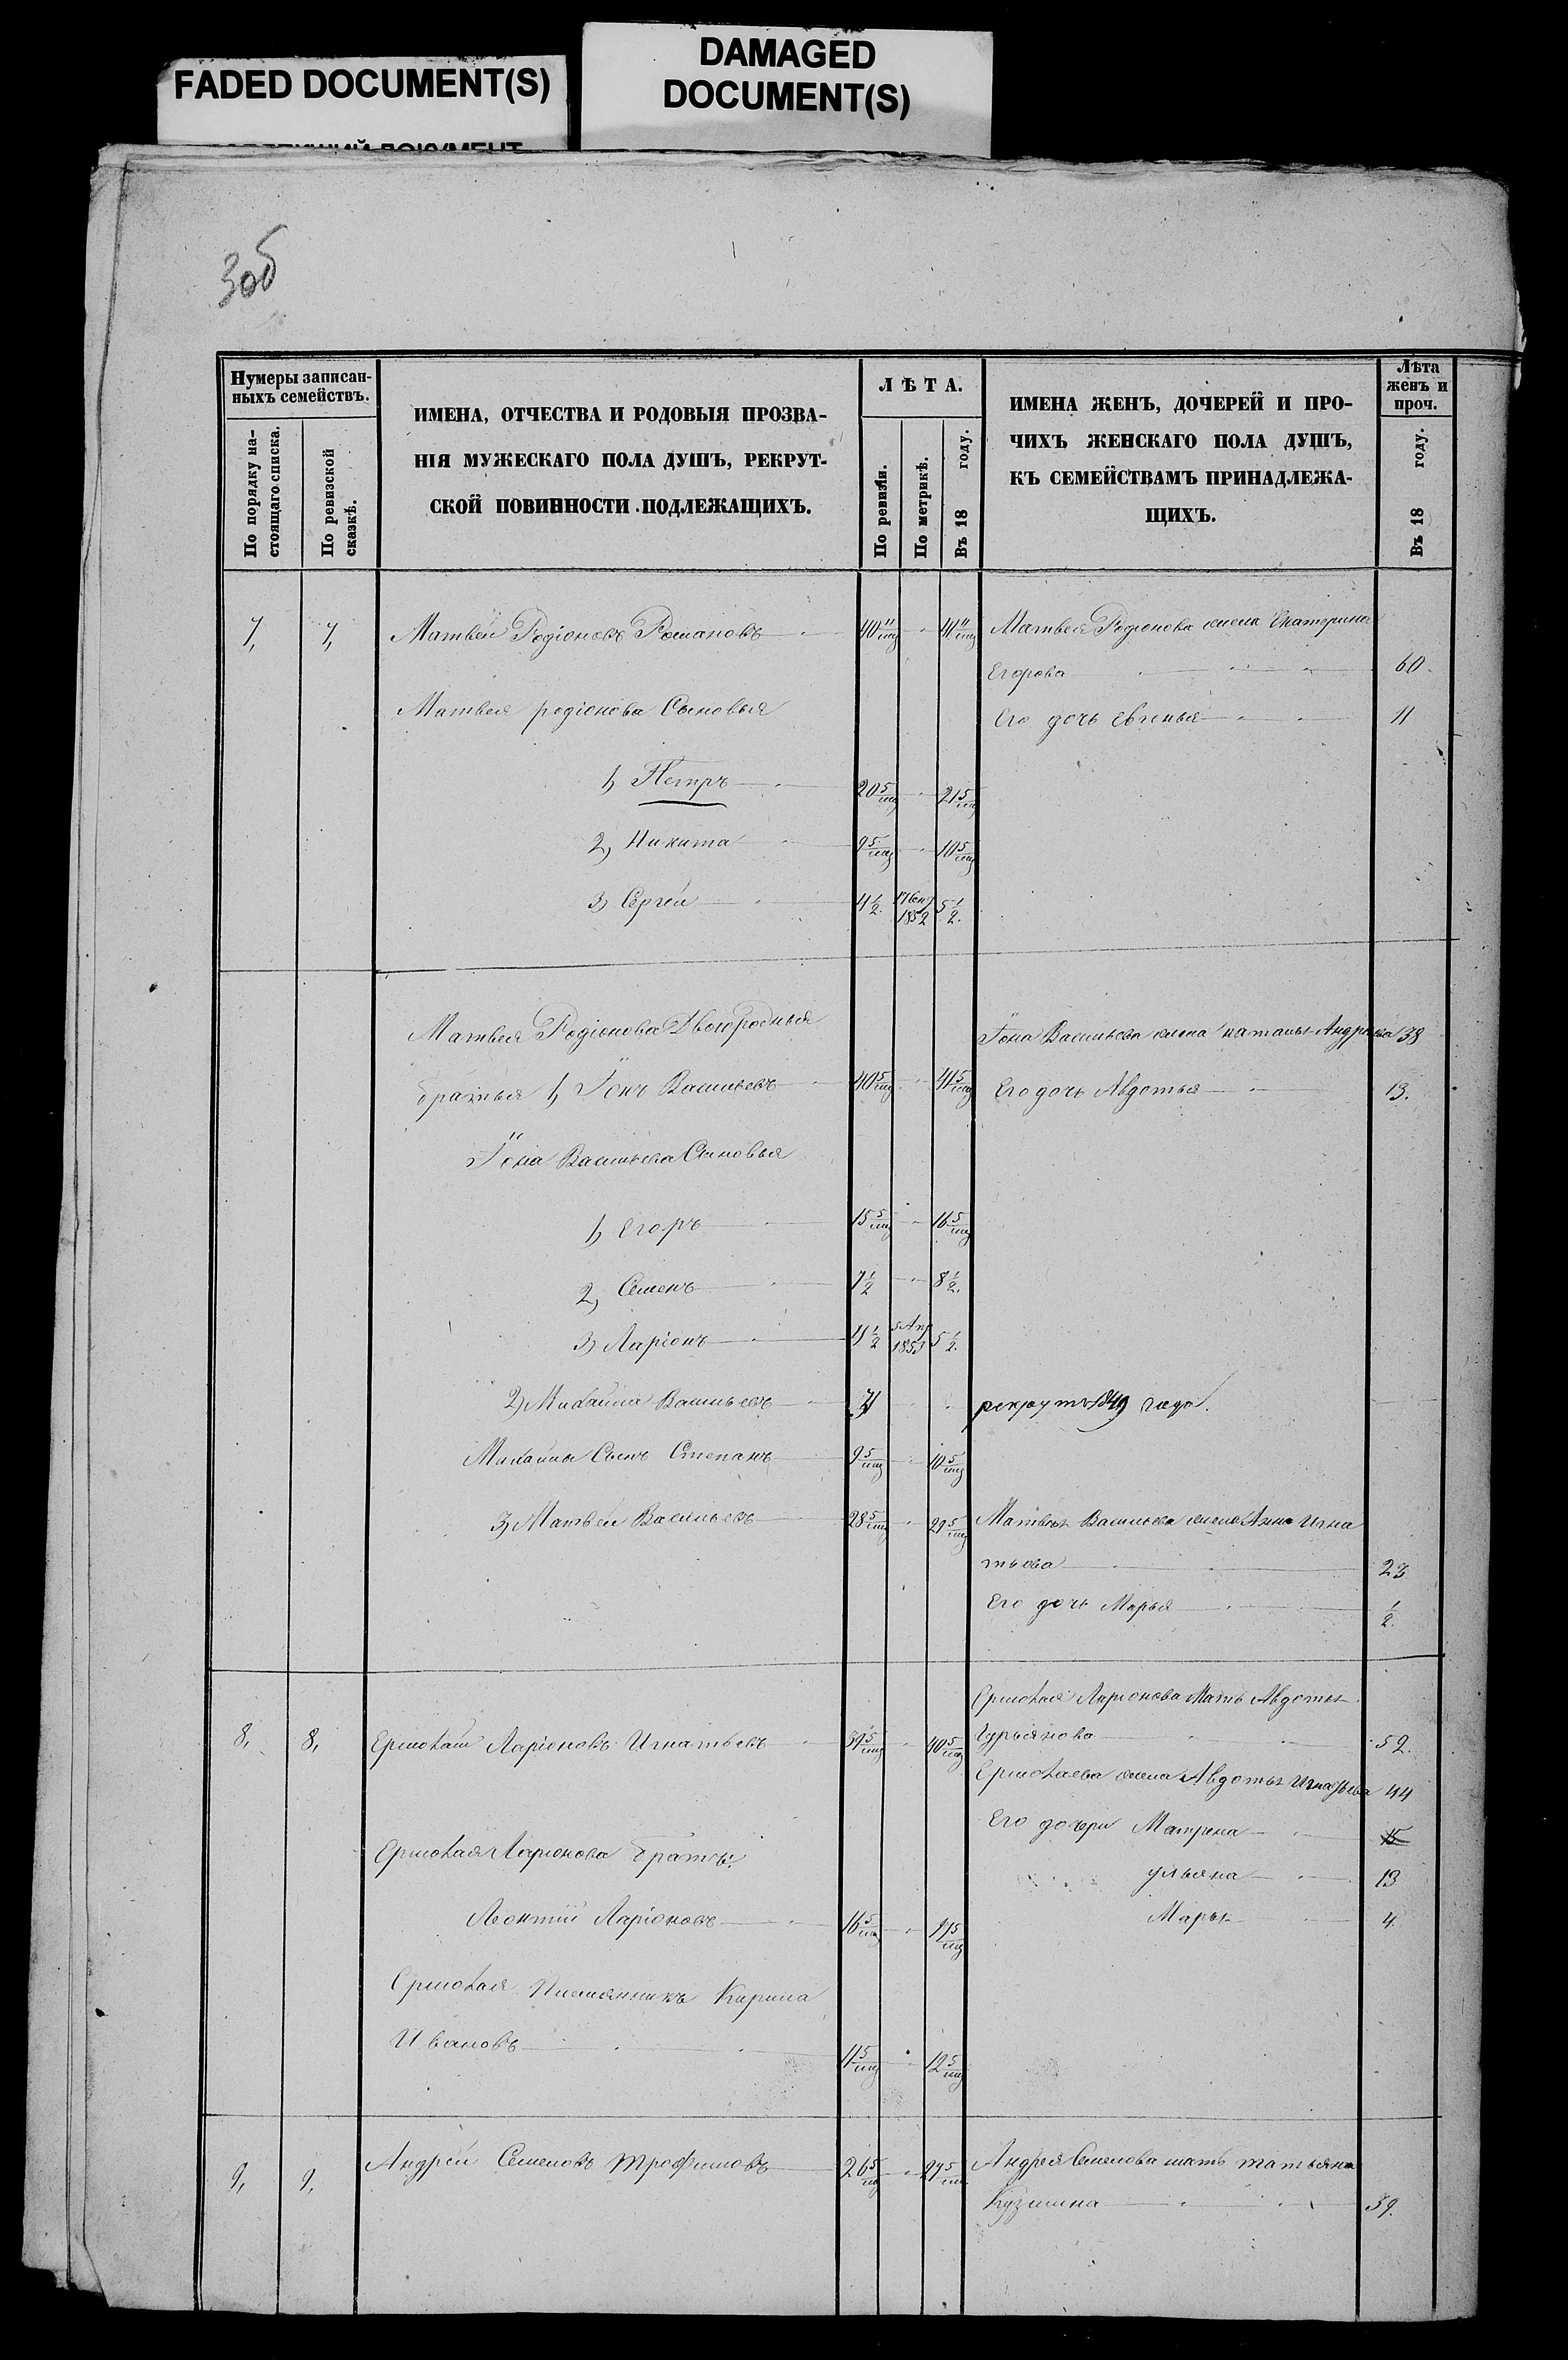 FADED DOCUMENT(S)
DAMAGED
DOCUMENT(S)
306
Нумеры записан-
ныхъ семействъ.
По порядку на-
стоящаго списка.
По ревизской
сказкѣ.
ИМЕНА, ОТЧЕСТВА И РОДОВЫЯ ПРОЗВА-
НІЯ МУЖЕСКАГО ПОЛА ДУШЪ, РЕКРУТ-
СКОЙ ПОВИННОСТИ ПОДЛЕЖАЩИХЪ.
ЛѢТА.
По ревизіи.
По метрикѣ.
Въ 18 году.
ИМЕНА ЖЕНЪ, ДОЧЕРЕЙ И ПРО-
ЧИХЪ ЖЕНСКАГО ПОЛА ДУШЪ,
КЪ СЕМЕЙСТВАМЪ ПРИНАДЛЕЖА-
ЩИХЪ.
Лѣта
женъ и
проч.
Въ 18 году.
7, 7, Матвей Родіоновъ Романовъ Матвея Родіонова жена Екатерина
Егорова 60
Матвея родіонова Сыновья
Его дочь Евгенья 11
1, Петръ 20 5/мц 21 5/мц
2, Никита 9 5/мц 10 5/мц
3, Сергей 4 1/2 1852 5 1/2
Матвея Родіонова Двоюродныя Іона Васильева жена наталья Андреева 38
братья 1, Іонъ Васильевъ 40 5/мц 41 5/мц Его дочь Авдотья 13.
Іона Васильева Сыновья
1, Егоръ 15 5/мц 16 5/мц
2, Семенъ 7 1/2 8 1/2
3, Ларіонъ 4 1/2 5 Апр 1853 5 1/2
2, Михайла Васильевъ рекрутъ 1849 года
Михайлы Сынъ Степанъ 9 5/мц 10 5/мц
3, Матвей Васильевъ 28 5/мц 29 5/мц Матвея Васильева жена Анна Игна
тьева 23
Его дочь Марья 1/2
Ермолая Ларіонова Мать Авдотья
8, 8, Ермолай Ларіоновъ Игнатьевъ 39 5/мц 40 5/мц Гурьянова 52.
Ермолаева жена Авдотья Игнатьева 44
Его дочери Матрена 15
Ермолая Ларіонова братъ.
ульяна 13
Леонтій Ларіоновъ 16 5/мц 17 5/мц Марья 4
Ермолая Племянникъ Кирила
Ивановъ 11 5/мц 12 5/мц
9, 9, Андрей Семеновъ трофимовъ 26 5/мц 27 5/мц Андрея Семенова мать татьяна
Кузмина 39.